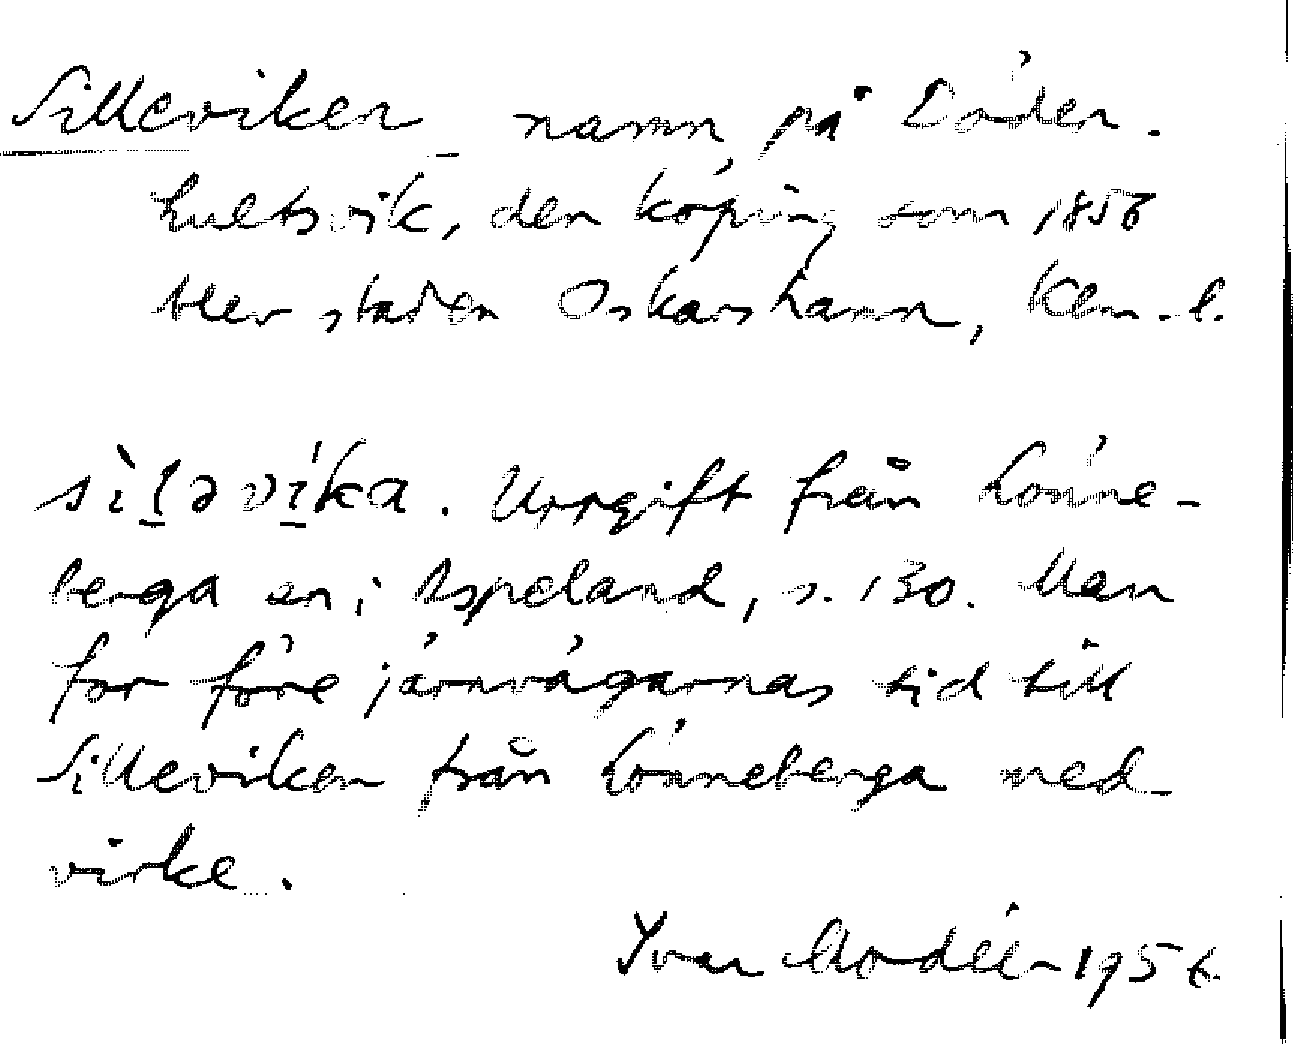 Silleviken namn på Döder-
hultsvik, den köping som 1856
blev staden Oskarshamn, Klm. l.
sìḻəvi̱ka. Uppgift från Lönne-
berga sn i Aspeland, s. 130. Man
for före järnvägarnas tid till
Silleviken från Lönneberga med
virke.
Yvar Modéer 1956.